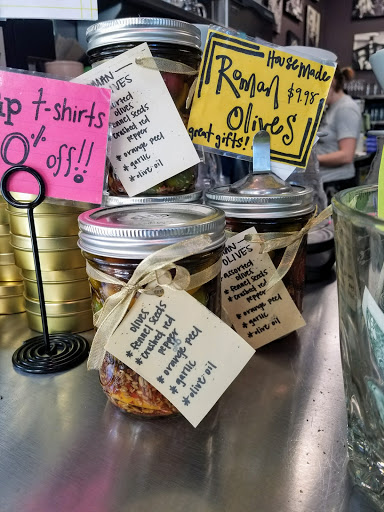 up t-shirts
0% off!!
House Made
Roman
$9.98
Olives
great gifts!
MAN
OLIVES
assorted
olives
* fennel seeds
* crushed red
pepper
* orange peel
* garlic
* olive oil
MAN
OLIVES
assorted
olives
* fennel seeds
* crushed red
pepper
* orange peel
* garlic
* olive oil
olives
* fennel seeds
* crushed red
pepper
* orange peel
* garlic
* olive oil